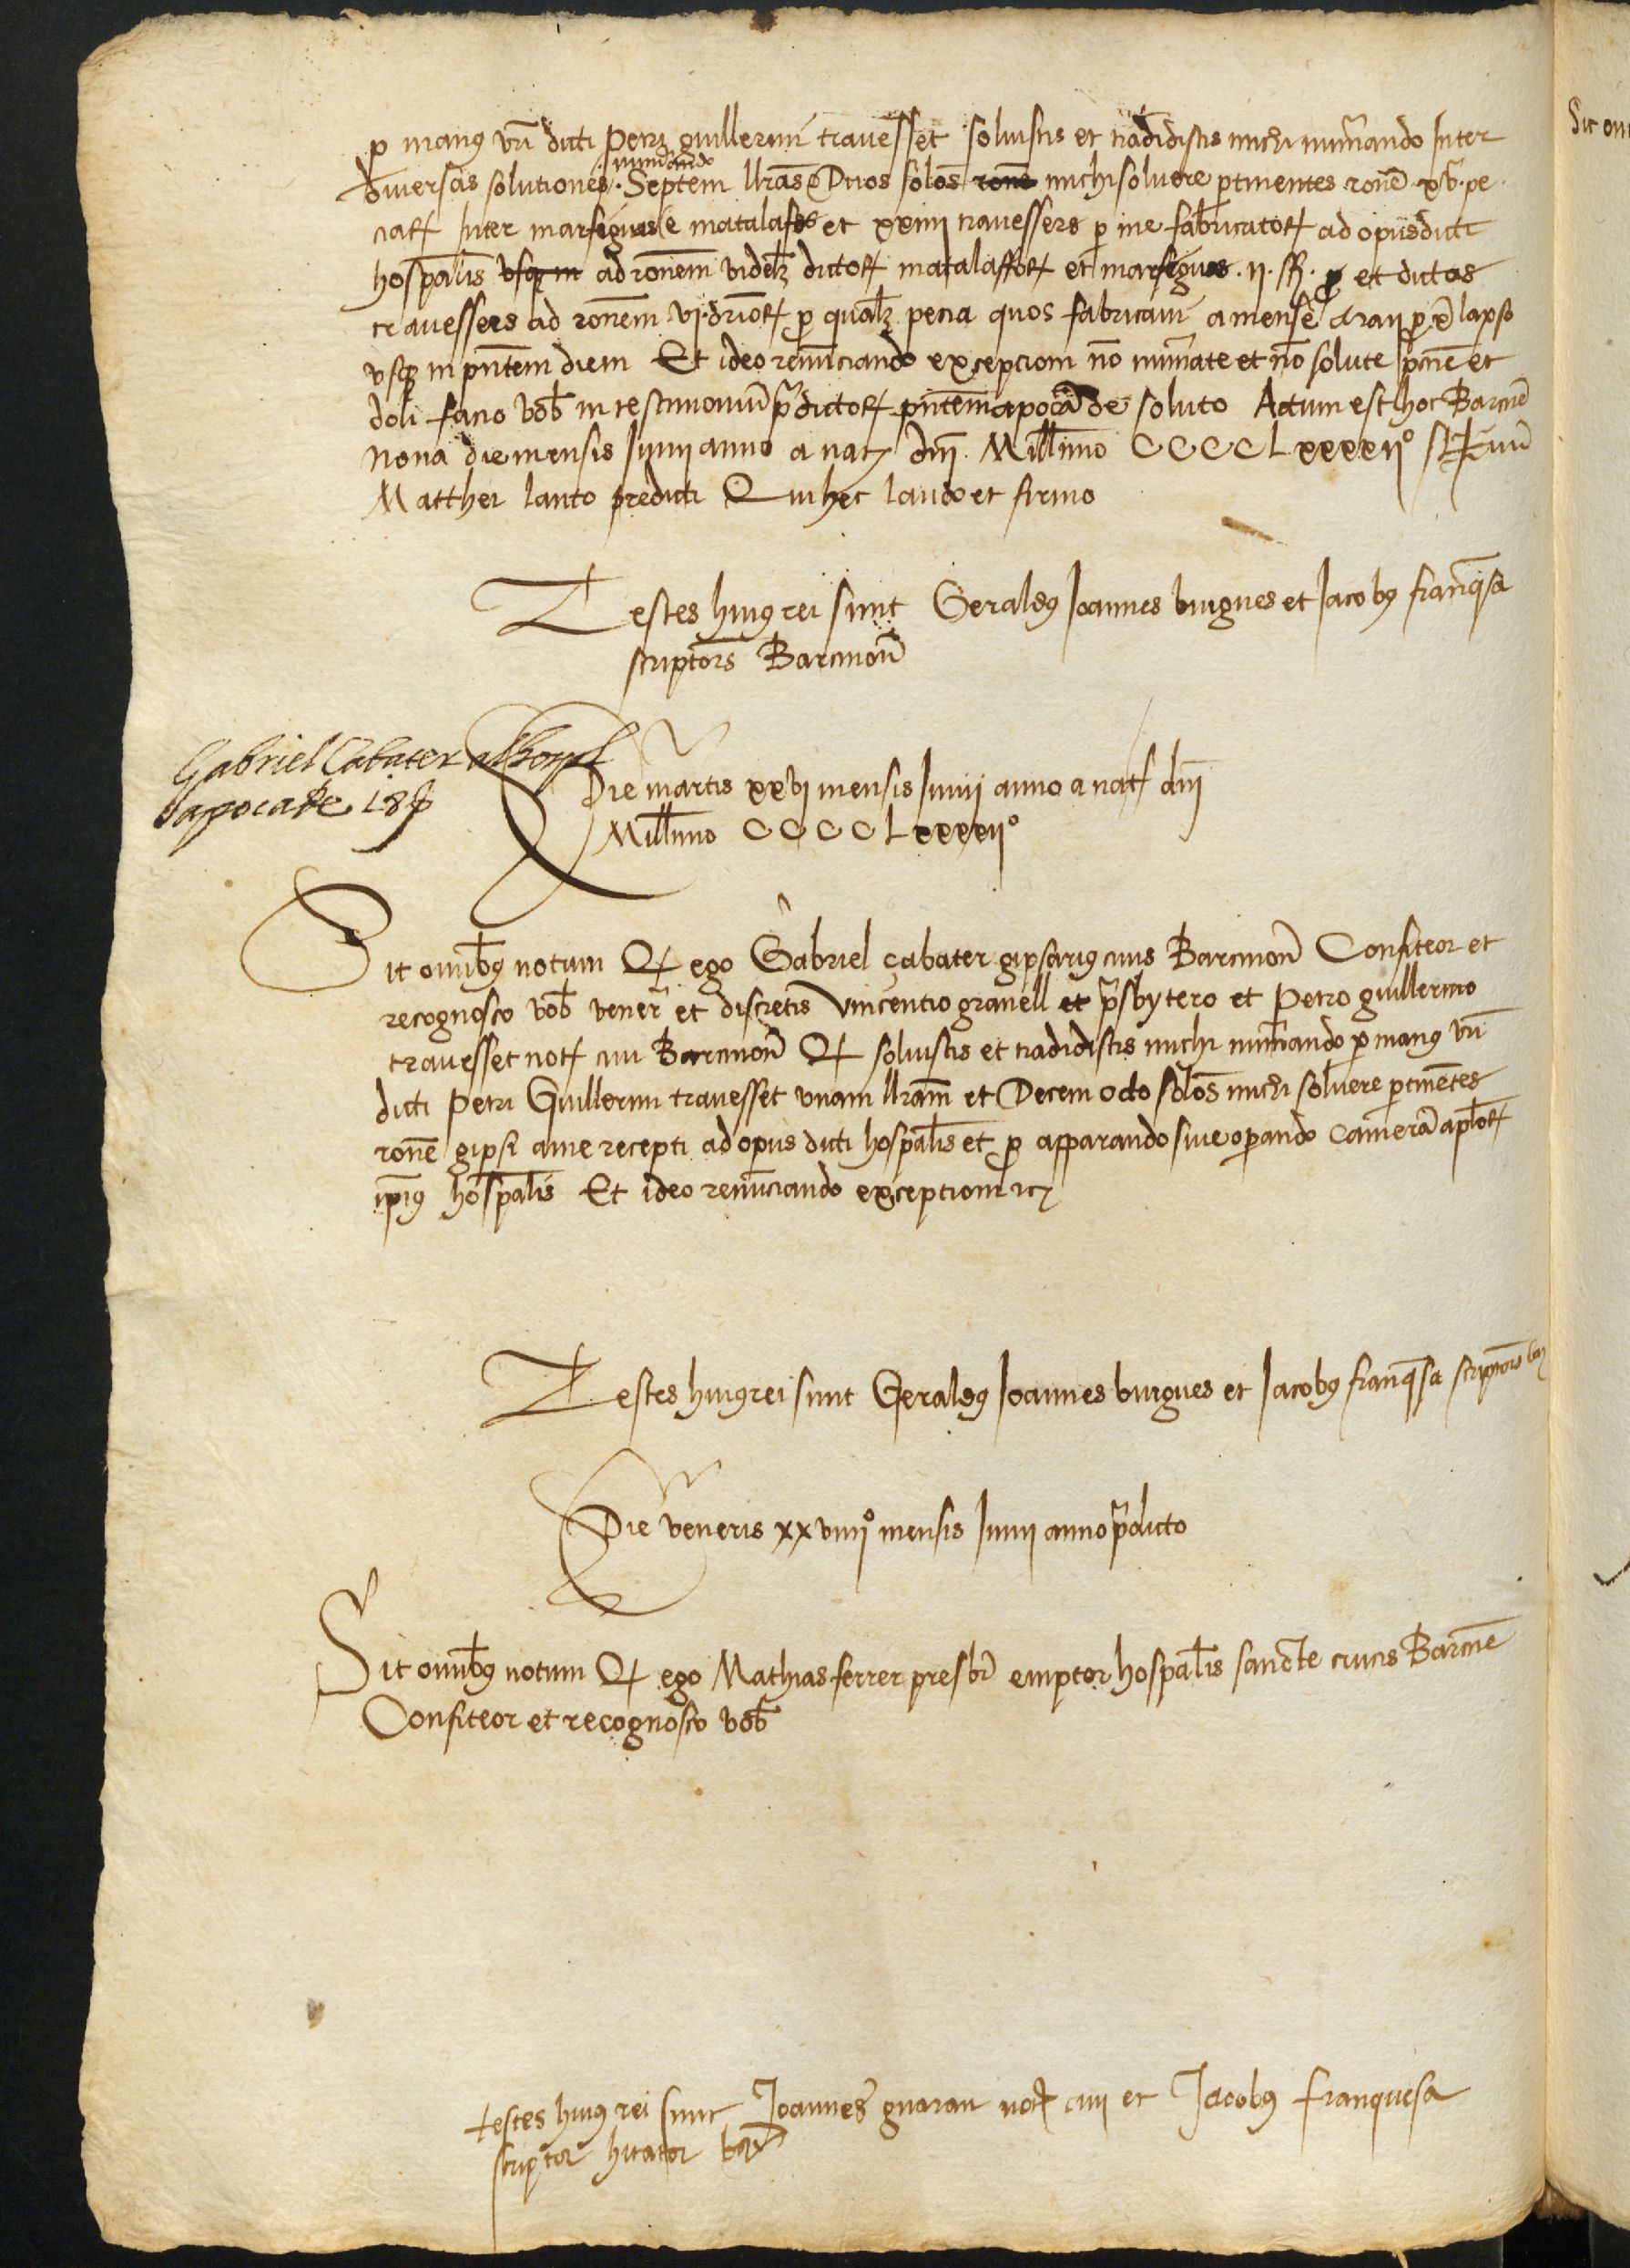 p manus vri dicti Petri guillermi travesset solvistis et tradidistis michi numerando Inter
numerando
diversas solutiones. Septem llras Duos solos rone michi solvere ptinentes rone xv. pe
ciarum Inter marfegues e matalafs et xxiiii travessers p me fabricatorum ad opus dicti
hospalis usq in ad ronem videlz dictorum matalafforum et marfegues .ii. ss. p et dictos
travessers ad ronem vi. driorum p qualz pecia quos fabricavi a mense maii p e lapso
usq in pntem diem Et ideo renunciando excepcioni no numerate et no solute pcnie et
doli facio vob in testimonium pdictorum pntem apocam de soluto Actum est hoc Barcne
nona die mensis Junii anno a nat dni Millimo CCCCLxxxxii°
Matthei lanto predicti Qui hec laudo et firmo
Testes huius rei sunt Geraldus Joannes burgues et Jacobus franqsa
scriptores Barcinon
Gabriel Çabater
apoca de
Die martis xxvi mensis Junii anno a nat dni
Millimo CCCCLxxxxii°
Sit omnibus notum Q ego Gabriel çabater gipsarius civis Barcinon Confiteor et
recognosco vob vener et discretis vincentio granell et psbytero et Petro guillermo
travesset not civi Barcinon Q solvistis et tradidistis michi numerando p manus vri
dicti Petri Guillermi travesset unam llram et Decem octo solos michi solvere ptinetes
rone gipsi a me recepti ad opus dicti hospalis et p apparando sive opando camera aplorum
ipius hospalis Et ideo renunciando exceptioni etc
Testes huius rei sunt Geraldus Joannes burgues et Jacobus franqsa scriptores bar
Die veneris xxviiii° mensis Junii anno pdicto
Sit omnibus notum Q ego Mathias ferrer presbr emptor hospalis sancte crucis Barcne
Confiteor et recognosco vob
testes huius rei sunt Joannes guarau not civi et Jacobus franquesa
scriptor hitator bar
Sit om